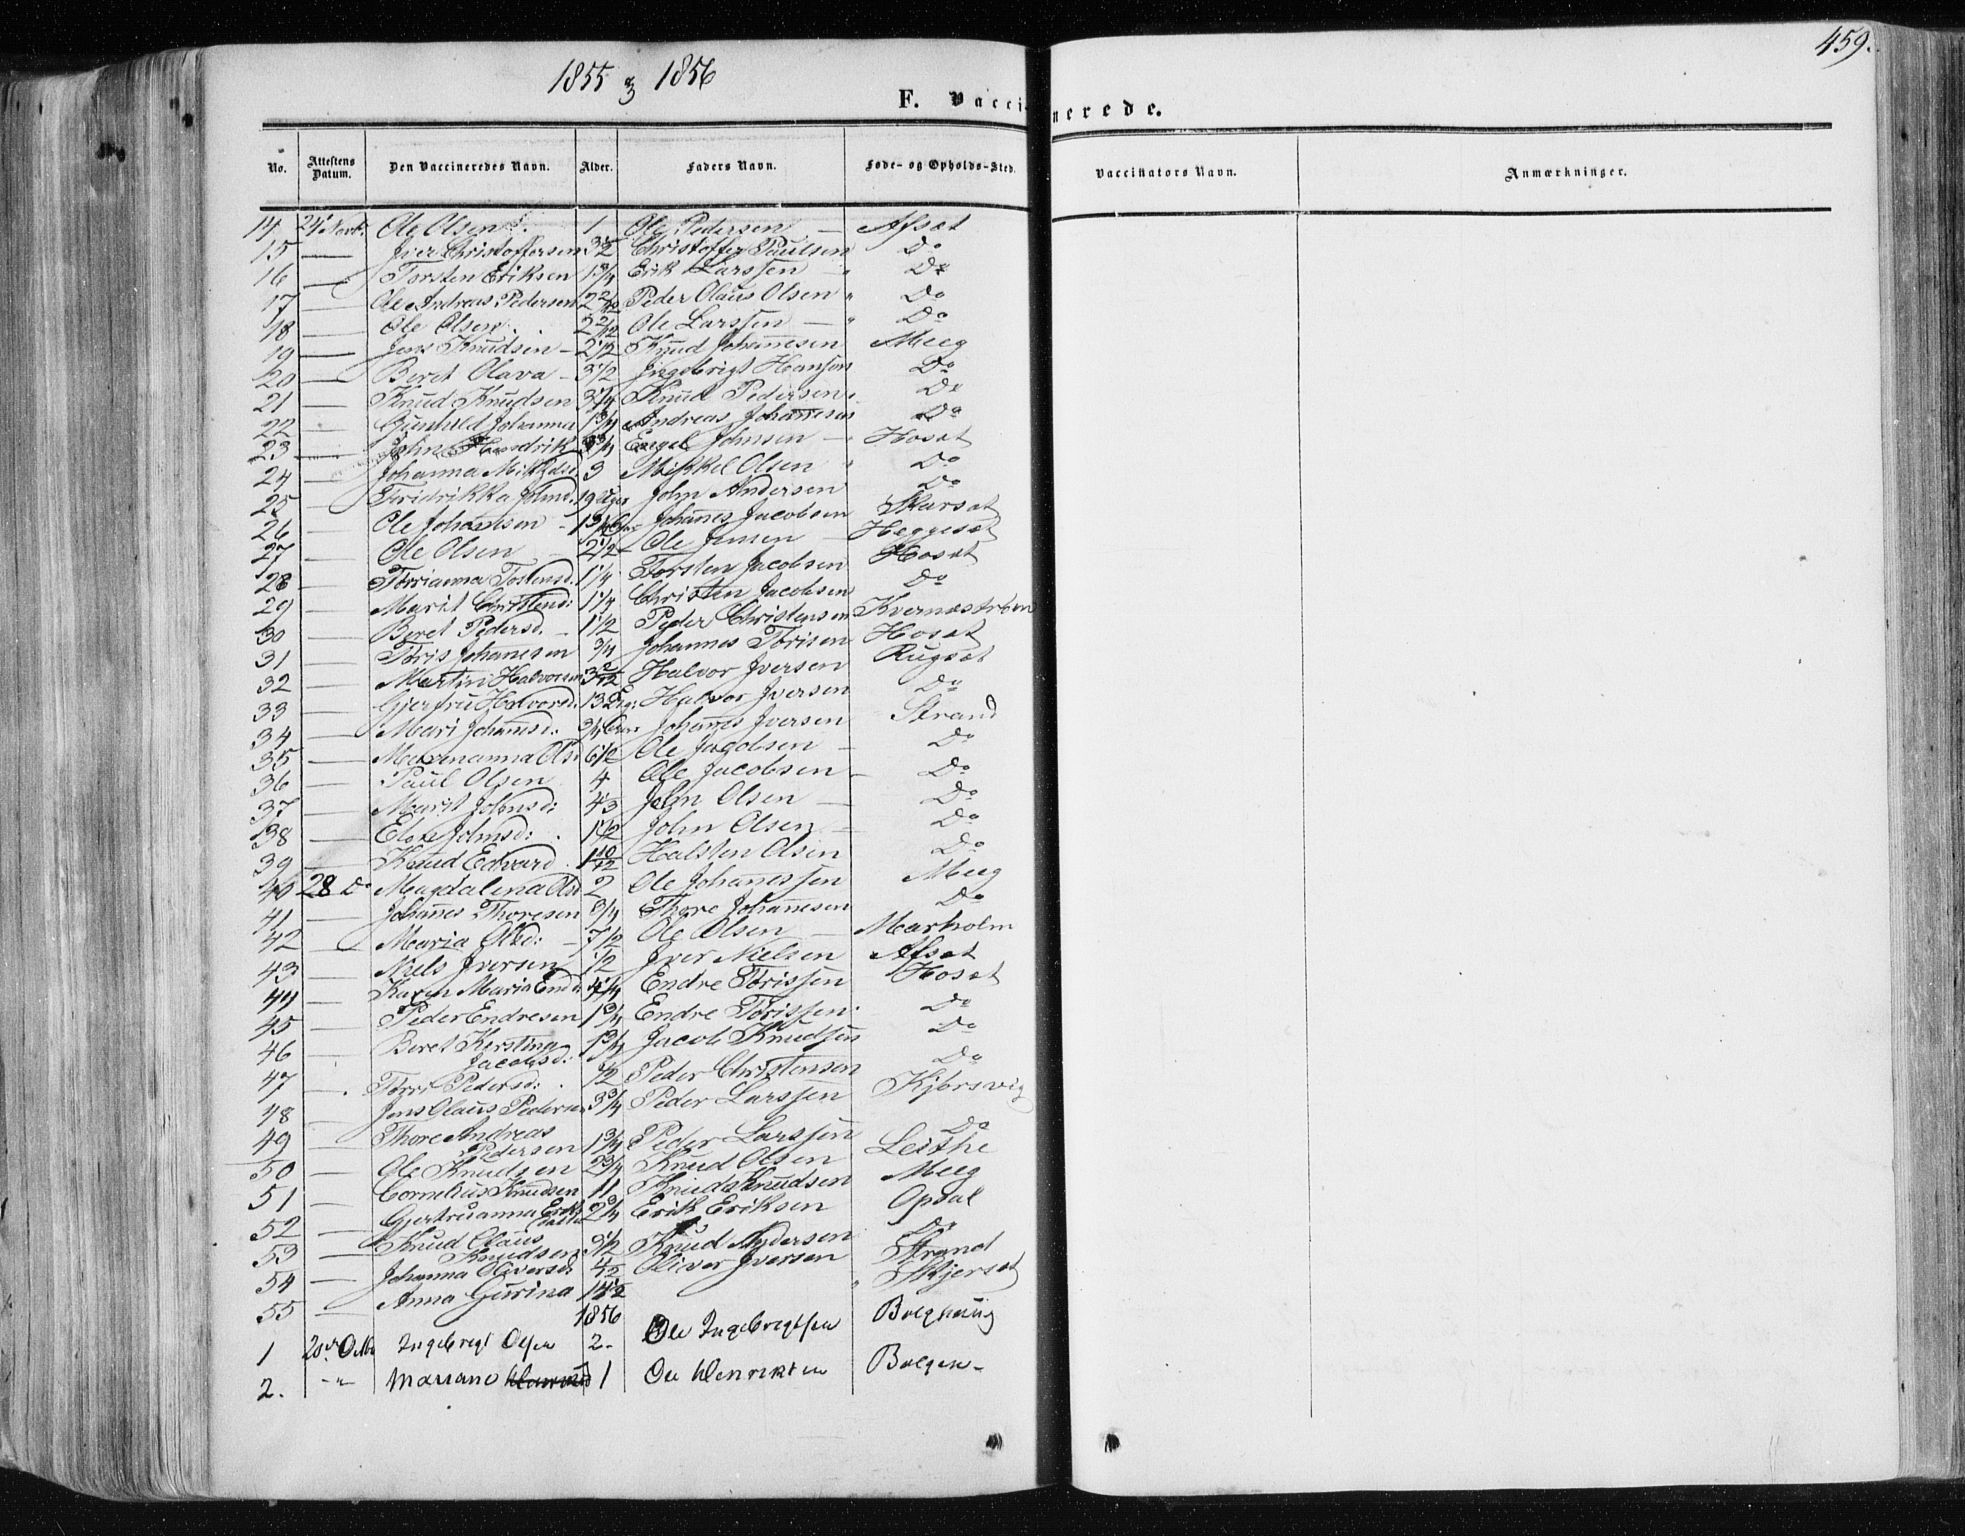 1855 & 1856
459.
F. Vaccinerede.
No. Attestens Datum. Den Vaccineredes Navn. Alder. Faders Navn. Føde- og Opholds-Sted. Vaccinators Navn. Anmærkninger.
14 24 Novb. Ole Olsen 1 Ole Pedersen — Afsæt
15 — Iver Christoffersen 3 1/2 Christoffer Paulsen Do
16 — Torsten Eriksen 1 3/4 Erik Larssen " Do
17 — Ole Andreas Pedersen 2 2/12 Peder Olaus Olsen " Do
18 — Ole Olsen 2 2/12 Ole Larssen — " Do
19 — Jens Knudsen - 2 1/2 Knud Johannesen Meeg
20 — Beret Olava - 3 1/2 Ingebrigt Hansen Do
21 — Knud Knudsen 3 1/4 Knud Pedersen Do
22 — Gunhild Johanna 1 3/4 Andreas Johannesen Do
23 — John Hendrik 3 3/4 Engel Johnsen — " Hosæt
24 — Johanna Mikkelsd. 3 Mikkel Olsen " Do
25 — Fredrikka Johnd. 19 Uger John Andersen Do
26 — Ole Johansen - 1 3/4 Johannes Jacobsen Skarsæt
27 — Ole Olsen 2 1/2 Ole Jensen — Heggesæt
28 — Torrianna Tostensd. 1 1/4 Torsten Jacobsen Hosæt
29 — Marit Christensd: 1 1/4 Christen Jacobsen Do
30 — Beret Pedersd. - 1 1/2 Peder Christensen Kvernæstrøen
31 — Tøris Johannesen 3/4 Johannes Tørisen Hosæt
32 — Martin Halvorsen 3 2/12 Halvor Iversen Rugsæt
33 — Gjertru Halvorsd. 13 Halvor Iversen Do
34 — Mari Johansd: 3/4 Johannes Iversen Strand
35 — Marenanna Olsd 6 1/2 Ole Jacobsen — Do
36 — Paul Olsen 4 Ole Jacobsen - Do
37 — Marit Johnsd: 4/3 John Olsen — Do
38 — Johnsd: 1 1/2 John Olsen — Do
39 — Knud Edvard 1 10/12 Halsten Olsen Do
40 28 Do Magdalena Olsd 2 Ole Johannessen Meeg
41 — Johannes Thoresen 3/4 Thore Johannesen Do
42 — Maria Olsd: - 7 1/2 Ole Olsen — Marholm
43 — Niels Iversen 1/2 Iver Nielsen Afsæt
44 — Karen Maria Endr: 4 1/4 Endre Tørissen Hosæt
45 — Peder Endresen 1 3/4 Endre Tørissen Do
46 — Beret Kerstina Jacobsd: 1 3/4 Jacob Knudsen Do
47 — Torri Pedersd: 1/2 Peder Christensen Do
48 — Jens Olaus Pedersen 3 3/4 Peder Larssen Kjørsvig
49 — Thore Andreas Pedersen 1 3/4 Peder Larssen Do
50 — Ole Knudsen 2 3/4 Knud Olsen Leithe
51 — Cornelius Knudsen 11 Knud Knudsen Meeg
52 — Gjertruanna Eriksdatter 2 3/4 Erik Eriksen Opdal
53 — Knud Olaus Knudsen 3 1/2 Knud Andersen Do
54 — Johanna Oliversd: 4/12 Oliver Iversen Strand
55 — Anna Gurina 14 1/2 " Skjersæt
1856
1 20de Octbr Ingebrigt Olsen 2 - Ole Ingebrigtsen Bolghaug
2. - " Mariane 1 Ole Henriksen Bolgen -